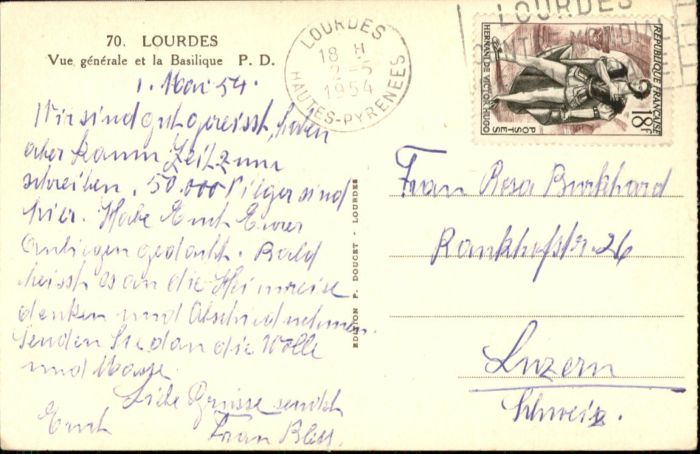 70. LOURDES
Vue générale et la Basilique P. D.
1. Mai 54.
Wir sind gut gereisst, haben
aber kaum Zeit zum
schreiben. 50.000 Pilger sind
hier. Habe Euch Eurer
Anliegen gedacht. Bald
heisst es an die Heimreise
denken und Abschied nehmen.
Senden Sie dan die Wolle
und Masse
Liebe Grüsse sendet
Euch Frau
EDITION P. DOUCET - LOURDES
LOURDES
18 H
2-5
1954
HAUTES-PYRENEES
LOURDES
REPUBLIQUE FRANÇAISE
HERNANI DE VICTOR HUGO
POSTES
18F
Frau Rosa Burkhard
Rankhofstr. 26
Luzern
Schweiz.